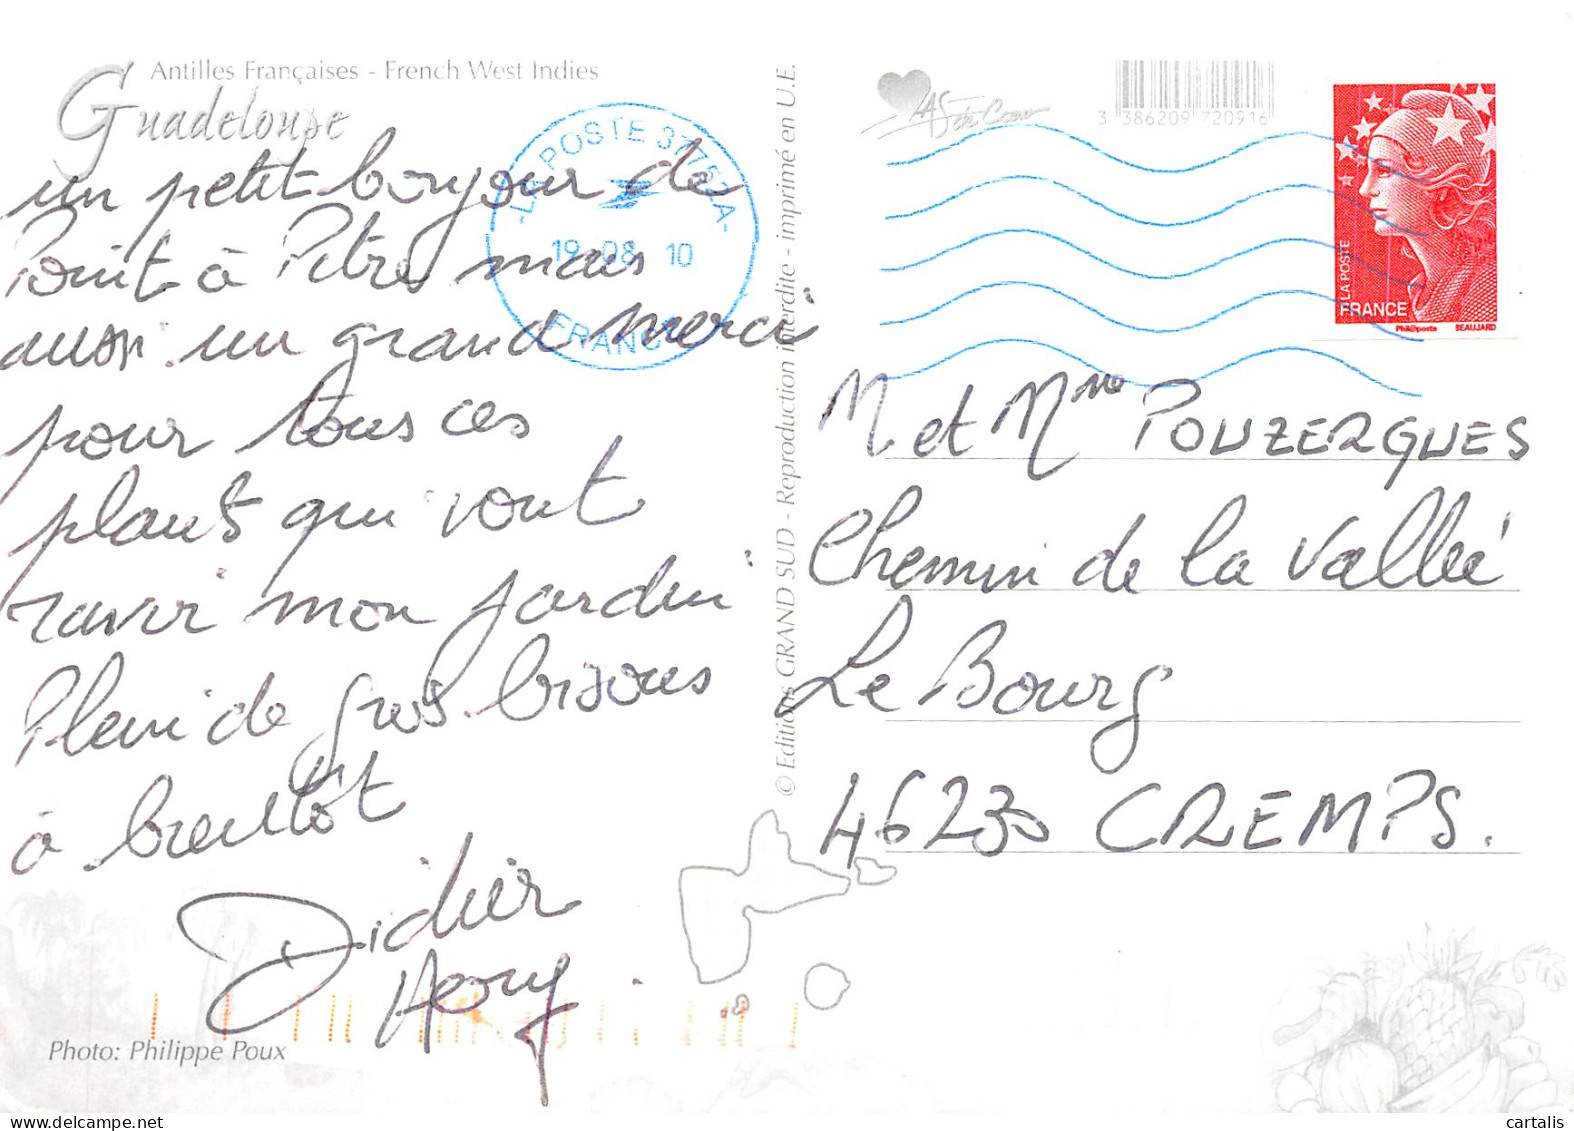 Antilles Françaises - French West Indies
Guadeloupe
un petit bonjour de
Point à Pitre mais
aussi un grand merci
pour tous ces
plants qui vont
ravir mon jardin
Plein de gros bisous
à bientôt
Didier
Photo: Philippe Poux
LA POSTE 37752A
19 08 10
FRANCE
© Editions GRAND SUD - Reproduction interdite - imprimé en U.E.
LAS de Coeur
3 386209 720916
LA POSTE
FRANCE
Phil@poste BEAUJARD
M et Mme POUZERGUES
Chemin de la Vallée
Le Bourg
46230 CREMPS.
cartalis